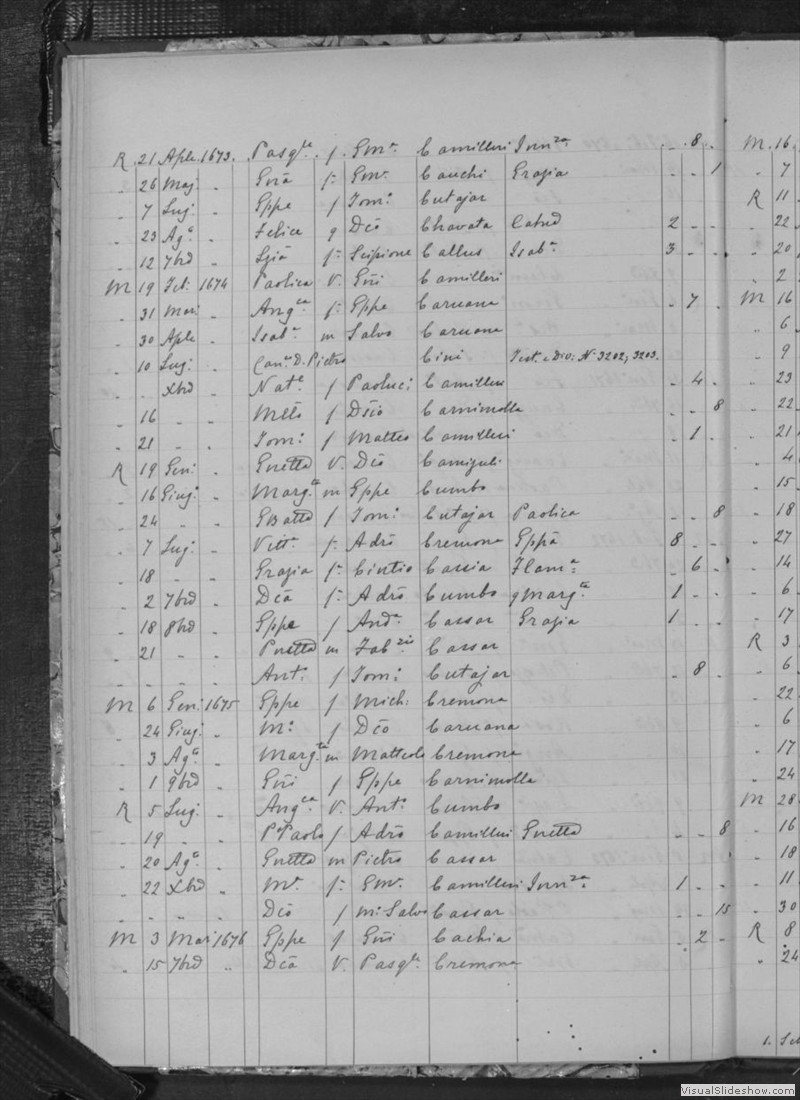 R. 21 Aple 1673. Pasqle f. Gmo Camilleri Innza . 8 . M. 16
. 26 Maj . Gnã f: Gmo Cauchi Grazia . . 1 . 7
. 7 Lug. . Gppe f Tomo Cutajar R 11
. 23 Ago . Felice q Dco Chavata Catnd 2 . . . 22
. 12 7bre . Lzia f: Scipione Callus Isaba 3 . . . 20
M 19 Feb: 1674 Paolica V. Gñi Camilleri . 2
. 31 Mar: . Angca f: Gppe Caruana . 7 . M 16
. 30 Aple . Isaba m Salvo Caruana . 6
. 10 Lug. . Cano D. Pietro Cini Test. e Div: N. 3202, 3203. . 9
. Xbre . Nate f Paoluc: Camilleri . 4 . . 23
. 16 . . Mtto f Dco Carnimolla . . 8 . 22
. 21 . . Tomo f Matteo Camilleri . 1 . . 21
R 19 Gen: . Gnetta V. Dco Camiguli . 4
. 16 Giugo . Margta m Gppe Cumbo . 15
. 24 . . GBatta f Tomo Cutajar Paolica . . 8 . 18
. 7 Lug: . Vitta f: Adrõ Cremona Gppã 8 . . . 27
. 18 . . Grazia f: Cintio Cassia Flama . 6 . . 14
. 2 7bre . Dcã f: Adrõ Cumbo q Margta 1 . . . 6
. 18 8bre . Gppe f Anda Cassar Grazia 1 . . 17
. 21 . . Pnetta m Fabzio Cassar R 3
. . Anto f Tomo Cutajar . 8 . 6
M 6 Gen: 1675 Gppe f Mich: Cremona . 22
. 24 Giug: . Mo f Dco Caruana . 6
. 3 Ago . Margta m Matteolo Cremona . 17
. 1 9bre . Gñi f Gppe Carnimolla . 24
R 5 Lug: . Angca V. Anto Cumbo M 28
. 19 . Po Paolo f Adrõ Camilleri Gnetta . . 8 . 16
. 20 Ago . Gnetta m Pietro Cassar . 18
. 22 Xbre . Mo f: Gmo Camilleri Innza 1 . . . 11
. . . . Dco f Mo Salvo Cassar . . 15 . 30
M 3 Mar: 1676 Gppe f Gñi Cachia . 2 . R 8
. 15 7bre " Dcã V. Pasqle Cremona . 24
VisualSlideshow.com